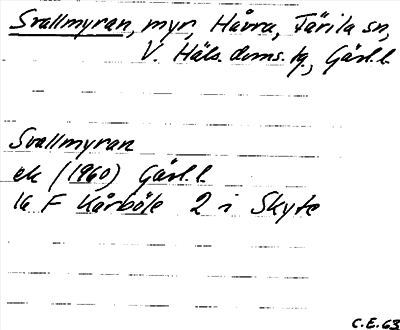 Svallmyran, myr, Håvra, Färila sn,
V. Häls. doms. tg., Gävl. l.
Svallmyran
ek (1960) Gävl. l.
16 F Kårböle 2 i Skyte
C.E. 63